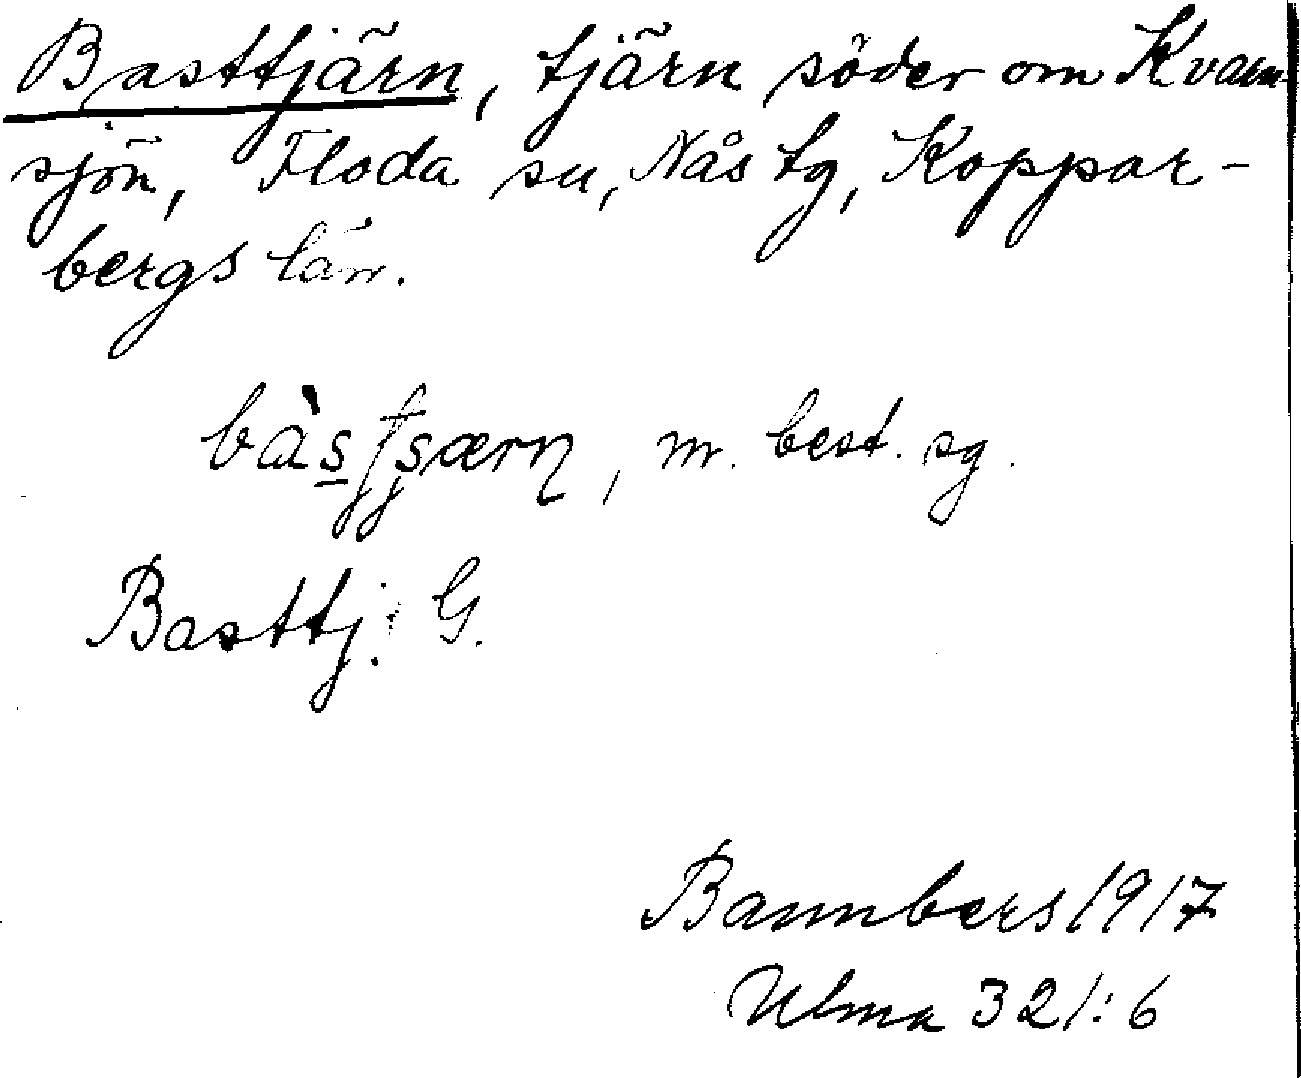 Basttjärn, tjärn söder om Kvarn-
sjön, Floda sn, Nås tg, Koppar-
bergs län.
m. best. sg.
Basttj. G.
Bannbers 1917
Ulma 321:6